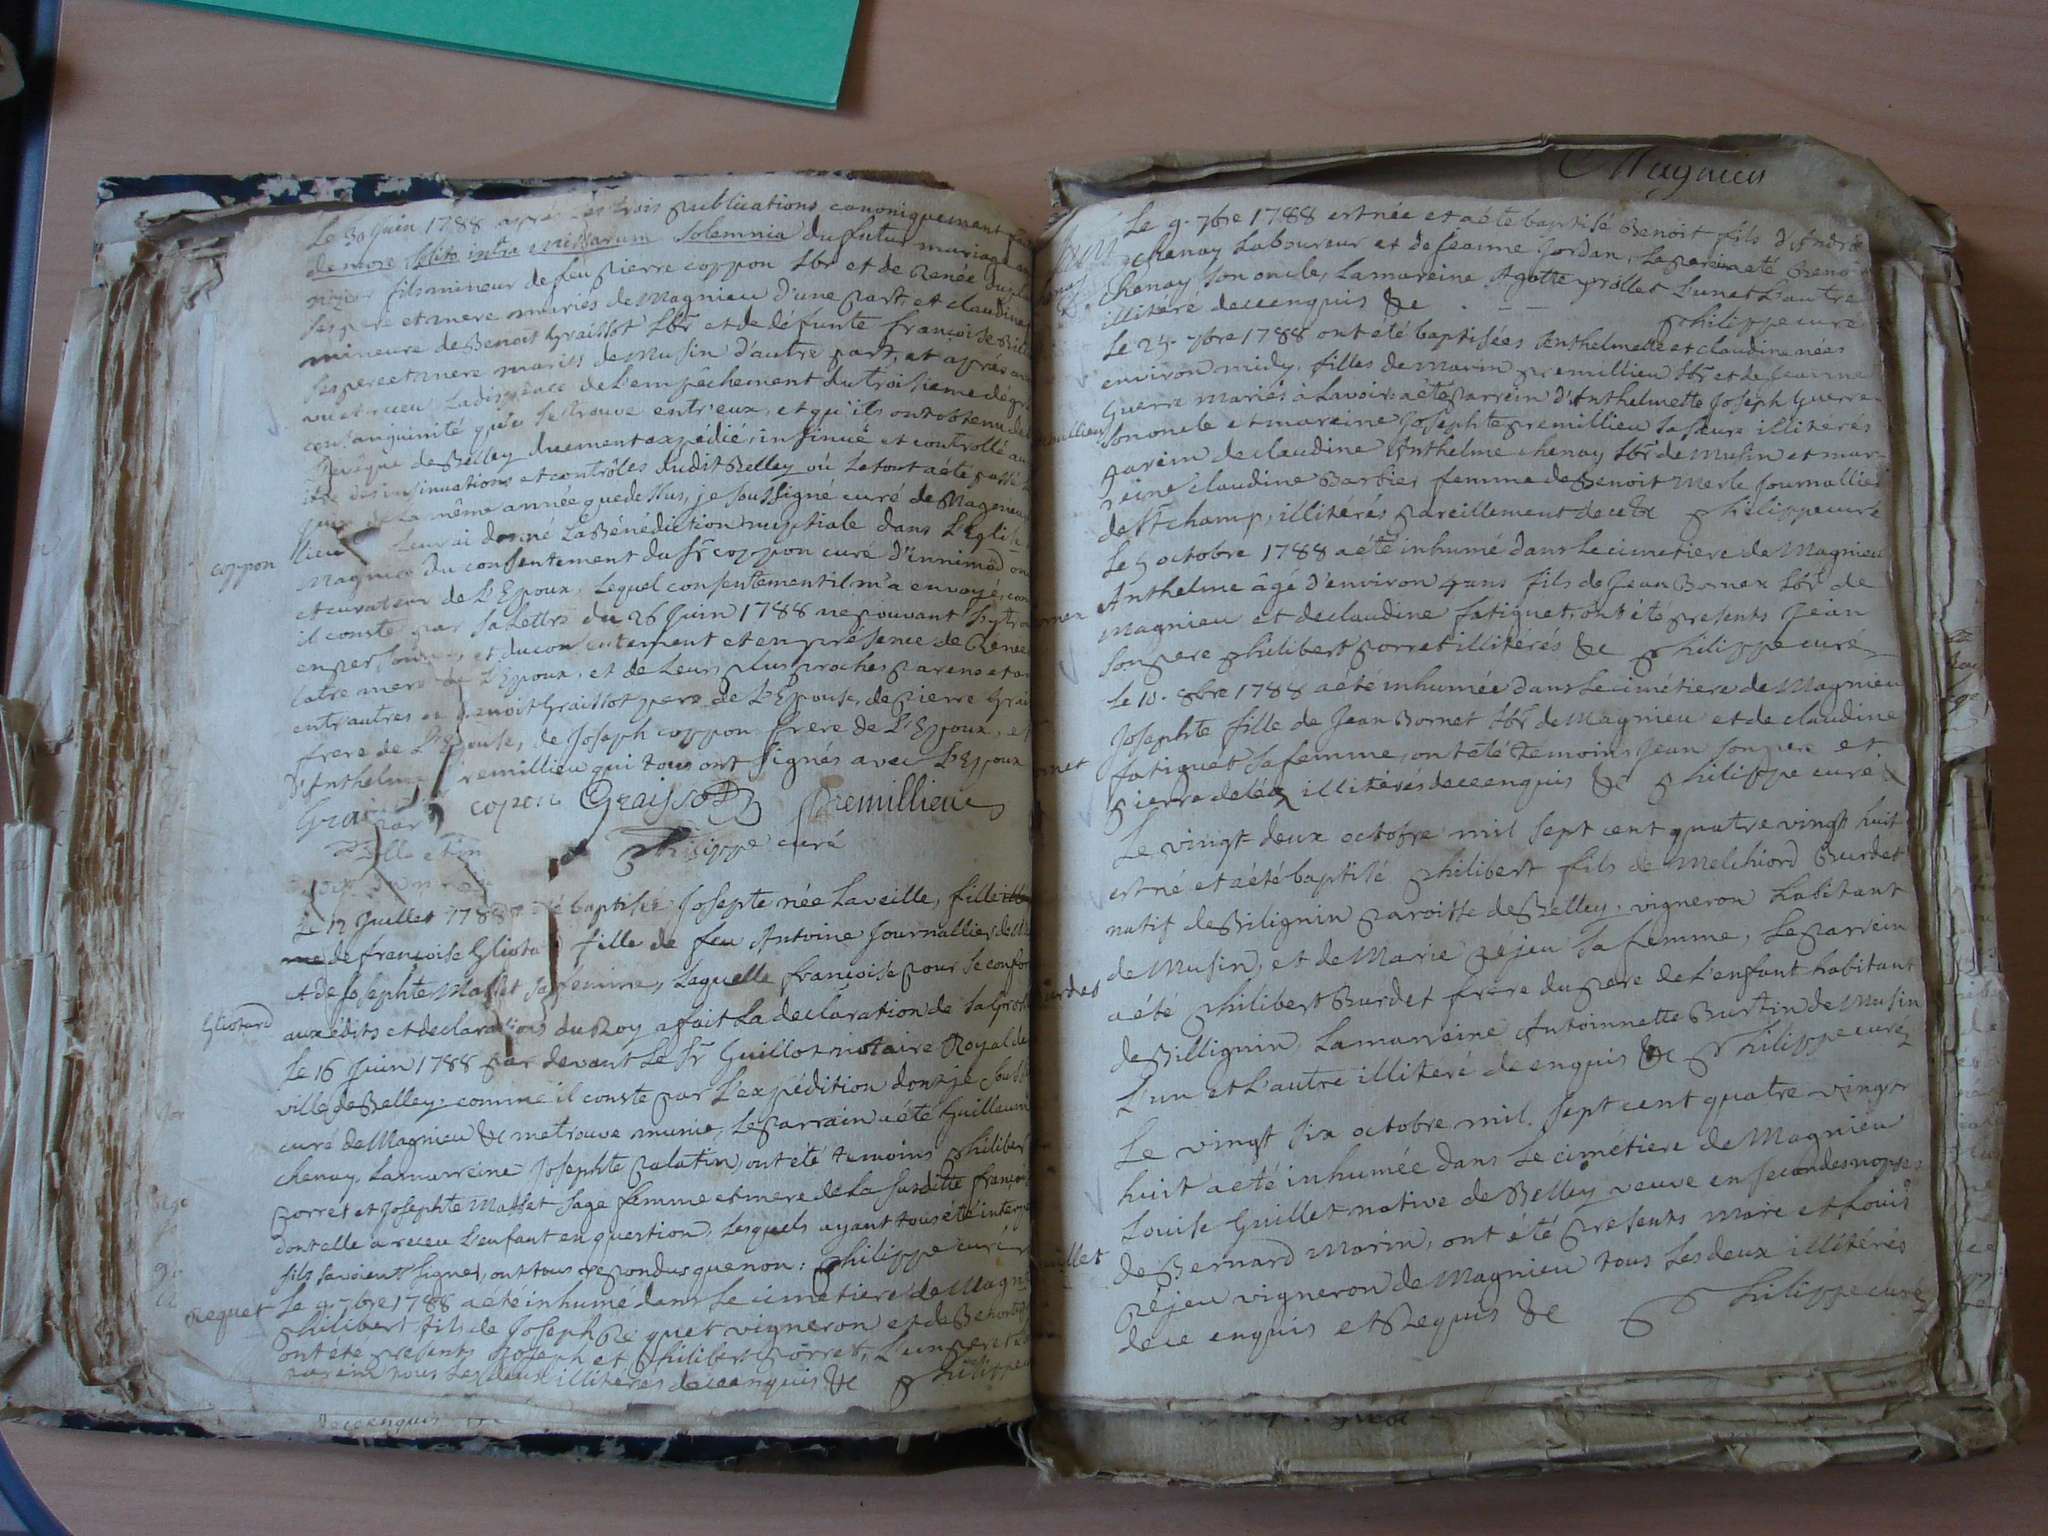 Le 30 Juin 1788 après les trois publications canoniquement
de more solito intra missarum solemnia du futur mariage
fils mineur de feu pierre coppon Lbr et de Renée
ses pere et mere mariés de Magnieu d'une part, et claudine
mineure de Benoit Graissot Lbr et de défunte françoise
ses pere et mere mariés de Musin d'autre part, et après
vu et receu La dispense de L'empêchement du troisieme dégré
consanguinité qui se trouve entr'eux, et qu'ils ont obtenu de
Evêque de Belley duement expédié, insinué et controllé au
des insinuations et contrôles dudit Belley où Le tout a été passé
de La même année que dessus, je soussigné curé de Magnieu
Leur ai donné La Bénédiction nuptiale dans L'Eglise
coppon
Magnieu du consentement du Sr coppon curé d'Innimod
et curateur de L'Epoux, Lequel consentement il m'a envoyé,
il conste par sa Lettre du 26 Juin 1788 ne pouvant s'y
en personne, et du consentement et en présence de Renée
mere de L'Epoux, et de Leurs plus proches parens et
entr'autres de Benoit Graissot pere de L'Epouse, de Pierre
frere de L'Epouse, de Joseph coppon frere de L'Epoux, et
d'Anthelme premillieu qui tous ont signés avec L'Epoux
copon Graissot premillieu
philippe curé
Le 12 Juillet 1788 a été baptisée Josepte née La veille, fille
de françoise Gliotard fille de feu Antoine Journallier de
et de Josephte Masset sa femme, Laquelle françoise pour se
Gliotard
aux édits et declarations du Roy a fait La declaration de sa
Le 16 Juin 1788 par devant Le Sr Guillot notaire Royal de
ville de Belley: comme il conste par L'expédition dont je
curé de Magnieu &c me trouve munie, Le parrain a été Guillaume
chenay, La marreine Josephte palatin, ont été temoins philibert
porret et Josephte Masset sage femme et mere de La susditte
dont elle a receu L'enfant en question, Lesquels ayant tous été
s'ils savoient signer, ont tous repondus que non: philippe curé
Requet
Le 9. 7bre 1788 a été inhumé dans Le cimetiere de
philibert fils de Joseph Requet vigneron et de
ont été presents Joseph et philibert porret, L'un pere et
parein tous Les deux illitérés de ce enquis &c philippe
de ce enquis
Magnieu
Le 9. 7bre 1788 est née et a été baptisé Benoit fils d'André
chenay Laboureur et de Jeanne Jordan, Le parein a été
chenay son oncle, La mareine Agathe prollet L'un et L'autre
illitéré de ce enquis &c philippe curé
Le 25. 7bre 1788 ont été baptisées Anthelmette et claudine nées
environ midy, filles de Marin premillieu Lbr et de Jeanne
Guerre mariés à Lavoir: a été parrein d'Anthelmette Joseph Guerre
son oncle et mareine Josephte premillieu sa sœur illitérés
parein de claudine Anthelme chenay Lbr de Musin et mar-
reine claudine Barbier femme de Benoit Merle Journallier
de St champ, illitérés pareillement de ce &c philippe curé
Le 5 octobre 1788 a été inhumé dans Le cimetiere de Magnieu
Anthelme âgé d'environ 4 ans fils de Jean Bornex Lbr de
Magnieu et de claudine fatiguet, ont été presents Jean
son pere philibert porret illitérés &c philippe curé
Le 10. 8bre 1788 a été inhumée dans Le cimétiere de Magnieu
Josephte fille de Jean Bornet Lbr de Magnieu et de claudine
fatiguet sa femme, ont été temoins Jean son pere et
pierre illitérés de ce enquis &c philippe curé
Le vingt deux octobre mil sept cent quatre vingt huit
est né et a été baptisé philibert fils de Melchiord Burdet
natif de Bilignin paroisse de Belley, vigneron habitant
de Musin, et de Marie pejeu sa femme, Le parrein
a été philibert Burdet frere du pere de L'enfant habitant
de Billignin, La marreine Antoinnette Burtin de Musin
L'un et L'autre illitéré de enquis &c philippe curé
Le vingt six octobre mil sept cent quatre vingt
huit a été inhumée dans Le cimétiere de Magnieu
Louise Guillet native de Belley veuve en secondes nopces
de Bernard Morin, ont été presents Marc et Louis
pejeu vigneron de Magnieu tous Les deux illitérés
de ce enquis et Requis &c philippe curé